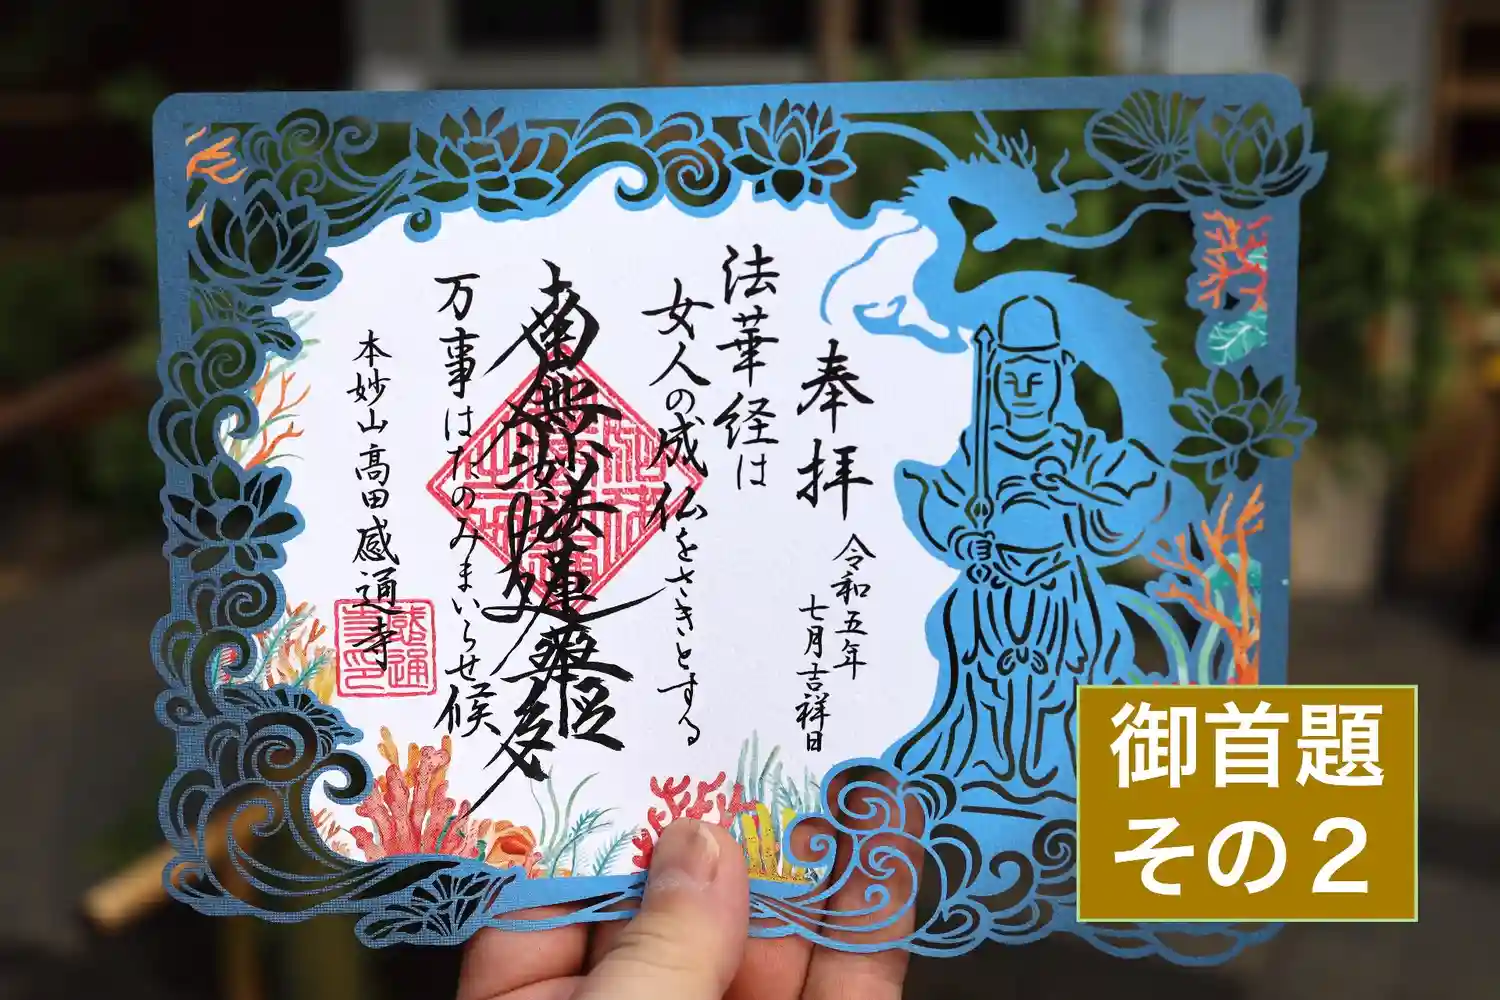 奉拝
令和五年
七月吉祥日
法華経は
女人の成仏をさきとする
南無妙法蓮華経
万事はたのみまいらせ候
本妙山高田感通寺
感通
寺印
御首題
その２